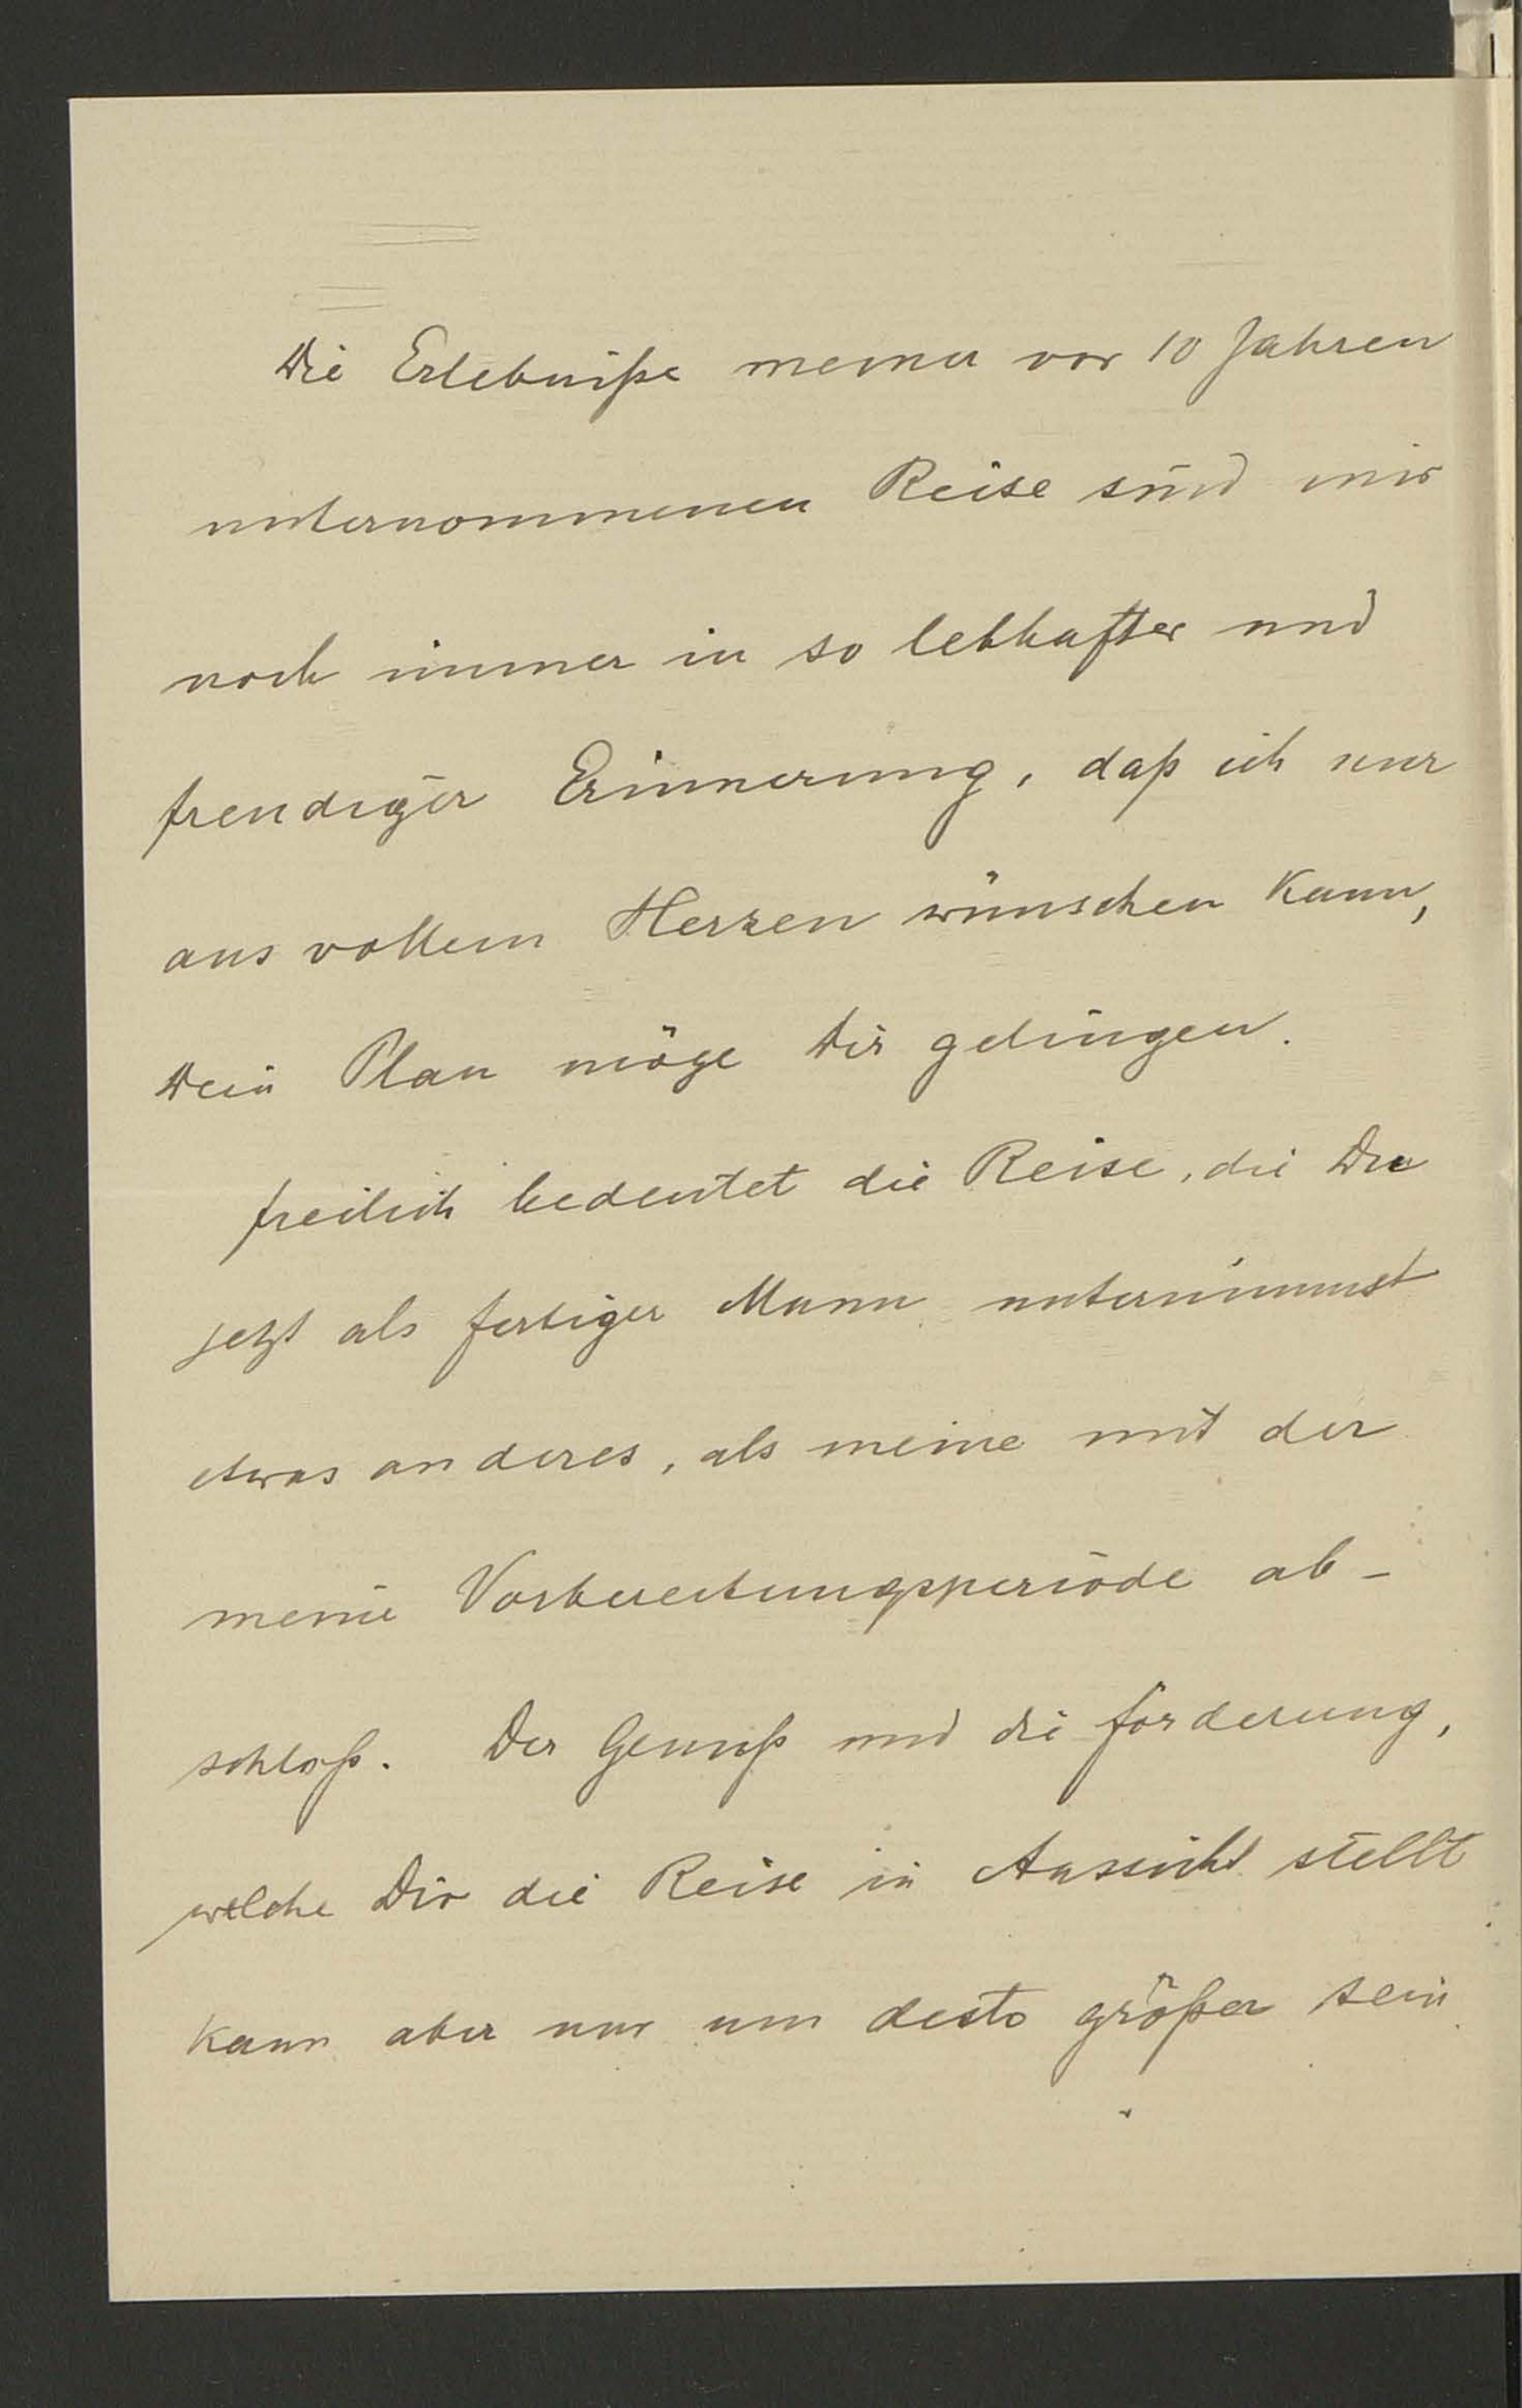 Die Erlebniße meiner vor 10 Jahren
unternommenen Reise sind mir
noch immer in so lebhafter und
freudiger Erinnerung, daß ich nur
aus vollem Herzen wünschen kann,
Dein Plan möge Dir gelingen.
Freilich bedeutet die Reise, die Du
jetzt als fertiger Mann unternimmst
etwas anderes, als meine mit der
meine Vorbereitungsperiode ab-
schloß. Der Genuß und die Förderung,
welche Dir die Reise in Aussicht stellt
kann aber nur um desto größer sein.